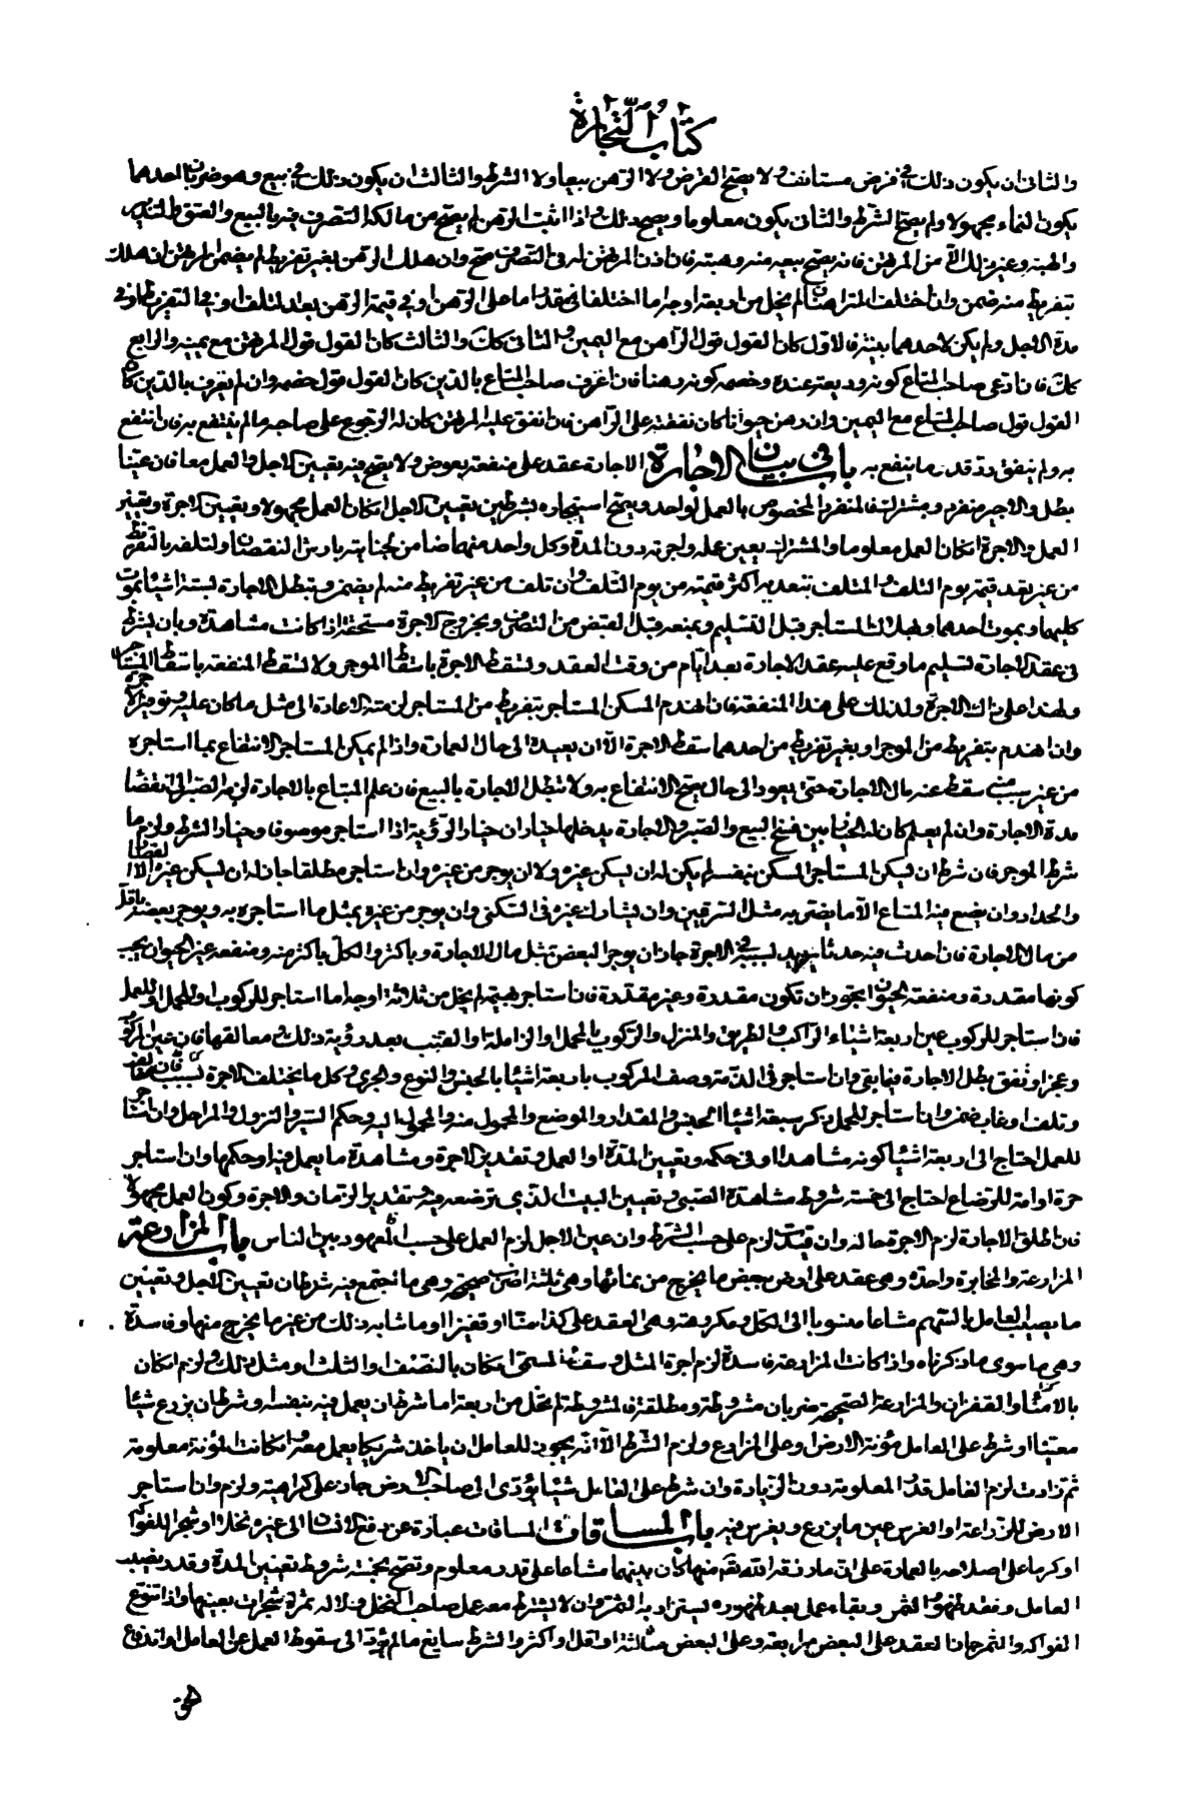 كتاب التجارة
والثانى ان يكون ذلك فى قرض مستانف ولا يصح القرض ولا الرهن بيعا ولا الشرط والثالث ان يكون ذلك فى بيع وهو ضربان احدهما
يكون النماء مجهولا ولم يصح الشرط والثانى يكون معلوما ويصح ذلك واذا اثبت الرهن لم يصح من مالكه التصرف فيه بالبيع والعتق والتدبير
والهبة وغير ذلك الا من المرتهن فانه يصح بيعه منه وهبته فان اذن المرتهن له فى التصرف صح وان هلك الرهن بغير تفريط لم يضمن المرتهن ان هلك
بتفريط منه ضمن وان اختلف المتراهنان لم يخل من اربعة اوجه اما اختلفا فى مقدار ما على الرهن او فى قيمة الرهن بعد التلف او فى التفريط او فى
مدة الاجل ولم يكن لاحدهما بينة فالاول كان القول قول الراهن مع اليمين والثانى كك والثالث كان القول قول المرتهن مع يمينه والرابع
كك فان ادعى صاحب المتاع كونه وديعة عنده وخصمه كونه رهنا فان اعترف صاحب المتاع بالدين كان القول قول خصمه وان لم يعترف بالدين كان
القول قول صاحب المتاع مع اليمين وان رهن حيوانا كان نفقته على الراهن فان انفق عليه المرتهن كان له الرجوع على صاحبه ما لم ينتفع به فان انتفع
به ولم ينفق رد قدر ما ينفع به باب فى بيان الاجارة الاجارة عقد على منفعة بعوض ولا يصح فيه تعيين الاجل والعمل معا فان عينا
بطل والاجير منفرد ومشترك فالمنفرد المخصوص بالعمل لواحد ويصح استيجاره بشرطين تعيين الاجل ان كان العمل مجهولا وتعيين الاجرة وتعيين
العمل والاجرة ان كان العمل معلوما والمشترك يعين عمله واجرته دون المدة وكل واحد منهما ضامن لجنايته بارش النقصان او لتلفه بالتفريط
من غير تعد قيمة يوم التلف والمتلف بتعديه اكثر قيمته من يوم التلف وان تلف من غير تفريط منه لم يضمن وتبطل الاجارة لستة اشياء بموت
كليهما وبموت احدهما وبهلاك المستاجر قبل التسليم وبمنعه قبل القبض من التصرف وبخروج الاجرة مستحقة اذا كانت مشاهدة وبان يشرط
فى عقد الاجارة تسليم ما وقع عليه عقد الاجارة بعد ايام من وقت العقد وتسقط الاجرة باسقاط الموجر ولا تسقط المنفعة باسقاط المستاجر
ولهذا على ذلك الاجرة ولذلك على هذا المنفعة فان انهدم المسكن المستاجر بتفريط من المستاجر لزمته الاعادة الى مثل ما كان عليه وتوفير الاجرة
وان انهدم بتفريط من الموجر او بغير تفريط من احدهما سقط الاجرة الا ان يعيده الى حال العمارة واذا لم يمكن المستاجر الانتفاع بما استاجره
من غير سبب منه سقط عنه مال الاجارة حتى يعود الى حال يصح الانتفاع به ولا تبطل الاجارة بالبيع فان علم المبتاع بالاجارة لزمه الصبر الى انقضاء
مدة الاجارة وان لم يعلم كان له الخيار بين فسخ البيع والصبر والاجارة يدخلها خياران خيار الرؤية اذا استاجر موصوفا وخيار الشرط ولزم ما
شرط الموجر فان شرط ان يسكن المستاجر المسكن بنفسه لم يكن له ان يسكن غيره ولا ان يوجر من غيره وان استاجر مطلقا جاز له ان يسكن غيره الا القصار
والحداد وان يضع فيه المتاع الا ما يضر به مثل السرقين وان يشارك غيره فى السكنى وان يوجر من غيره بمثل ما استاجره به ويوجر بعضه باقل
من مال الاجارة فان احدث فيه حدثا يزيد بسببه فى الاجرة جاز ان يوجر البعض بمثل مال الاجارة وباكثر والكل باكثر منه ومنفعة غير الحيوان يجب
كونها مقدرة ومنفعة الحيوان يجوز ان تكون مقدرة وغير مقدرة فان استاجر بهيمة لم يخل من ثلاثة اوجه اما استاجر للركوب او للحمل او للعمل
فان استاجر للركوب عين اربعة اشياء الراكب والطريق والمنزل والركوب بالمحمل او الزاملة او القتب بعد رؤية ذلك ومعالقها فان عين المركوب
وعجز او نفق بطل الاجارة فيما بقى وان استاجر فى الذمة وصف المركوب باربعة اشياء بالجنس والنوع والجرى وكل ما يختلف الاجرة لسببه فان نفق
وتلف او غاب ضمن وان استاجر للحمل ذكر سبعة اشياء الجنس والمقدار والموضع والمحمول منه والمحمول اليه وحكم السير والنزول والمراحل وان استاجر
للعمل احتاج الى اربعة اشياء كونه مشاهدا او فى حكمه وتعيين المدة او العمل وتقدير الاجرة ومشاهدة ما يعمل فيه او حكمها وان استاجر
حرة او امة للرضاع احتاج الى خمسة شروط مشاهدة الصبى وتعيين البيت الذى ترضعه فيه وتقدير الزمان والاجرة وكون العمل مجهولا
فان اطلق الاجارة لزم الاجرة حالة وان قيدت لزم على حسب الشرط وان عين الاجل لزم العمل على حسب المعهود بين الناس باب المزارعة
المزارعة والمخابرة واحدة وهى عقد على ارض ببعض ما يخرج من نمائها وهى ثلثة اضرب صحيحة وهى ما تجتمع فيه شرطان تعيين الاجل وتعيين
ما يصيب العامل بالسهم مشاعا منسوبا الى الكل ومكروهة وهى العقد على كذا منا او قفيزا او ما شابه ذلك من غير ما يخرج منها وفاسدة
وهى ما سوى ما ذكرناه واذا كانت المزارعة فاسدة لزم اجرة المثل وسقط المسمى ان كان بالنصف او الثلث او مثل ذلك ولزم ان كان
بالامناء او القفزان والمزارعة الصحيحة ضربان مشروطة ومطلقة فالمشروطة لم تخل من اربعة اما شرط ان يعمل فيه بنفسه وشرط ان يزرع شيئا
معينا او شرط على العامل مؤنة الارض او على المزارع ولزم الشرط الا انه يجوز للعامل ان ياخذ شريكا يعمل معه وان كانت المؤنة معلومة
ثم زادت لزم العامل قدر المعلومة دون الزيادة وان شرط على العامل شيئا يؤدى الى صاحب الارض جاز على كراهية ولزم وان استاجر
الارض للزراعة او الغرس عين ما يزرع ويغرس فيه باب المساقات المساقات عبارة عن دفع الانسان الى غيره نخلا او شجر الفواكه
او كرما على اصلاحه بالعمارة على ان ما رزقه الله تعالى منهما كان بينهما مشاعا على قدر معلوم وتصح بخمسة شروط تعيين المدة وقدر نصيب
العامل وفقد ظهور الثمر وبقاء عمل بعد ظهوره ليستزاد به الثمر وان لا يشترط معه عمل صاحب النخل ولا له ثمرة شجرات بعينها واذا تنوع
الفواكه والثمر جاز العقد على البعض مرابعة وعلى البعض مثالثة او اقل او اكثر والشرط سايغ ما لم يؤد الى سقوط العمل عن العامل او اندفع